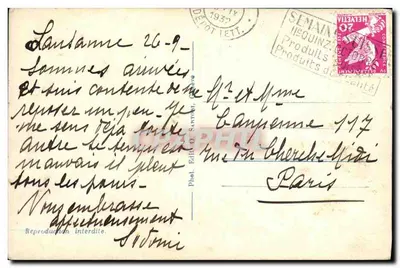 Lausanne 26-9-
Sommes arrivées
et suis contente de me
reposer un peu. Je
me sens déjà toute
autre le temps est
mauvais il pleut
tous les jours.
Vous embrasse
affectueusement
Reproduction Interdite.
Phot. Edition
Mr et Mme
117
rue du Cherche Midi
Paris
1932
DEPOT LETT.
SEMAINE SUISSE
Produits
Produits
HELVETIA
20